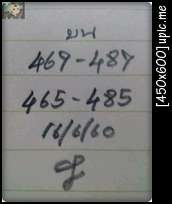 บน
469-487
465-485
16/6/60
[450x600] upic.me